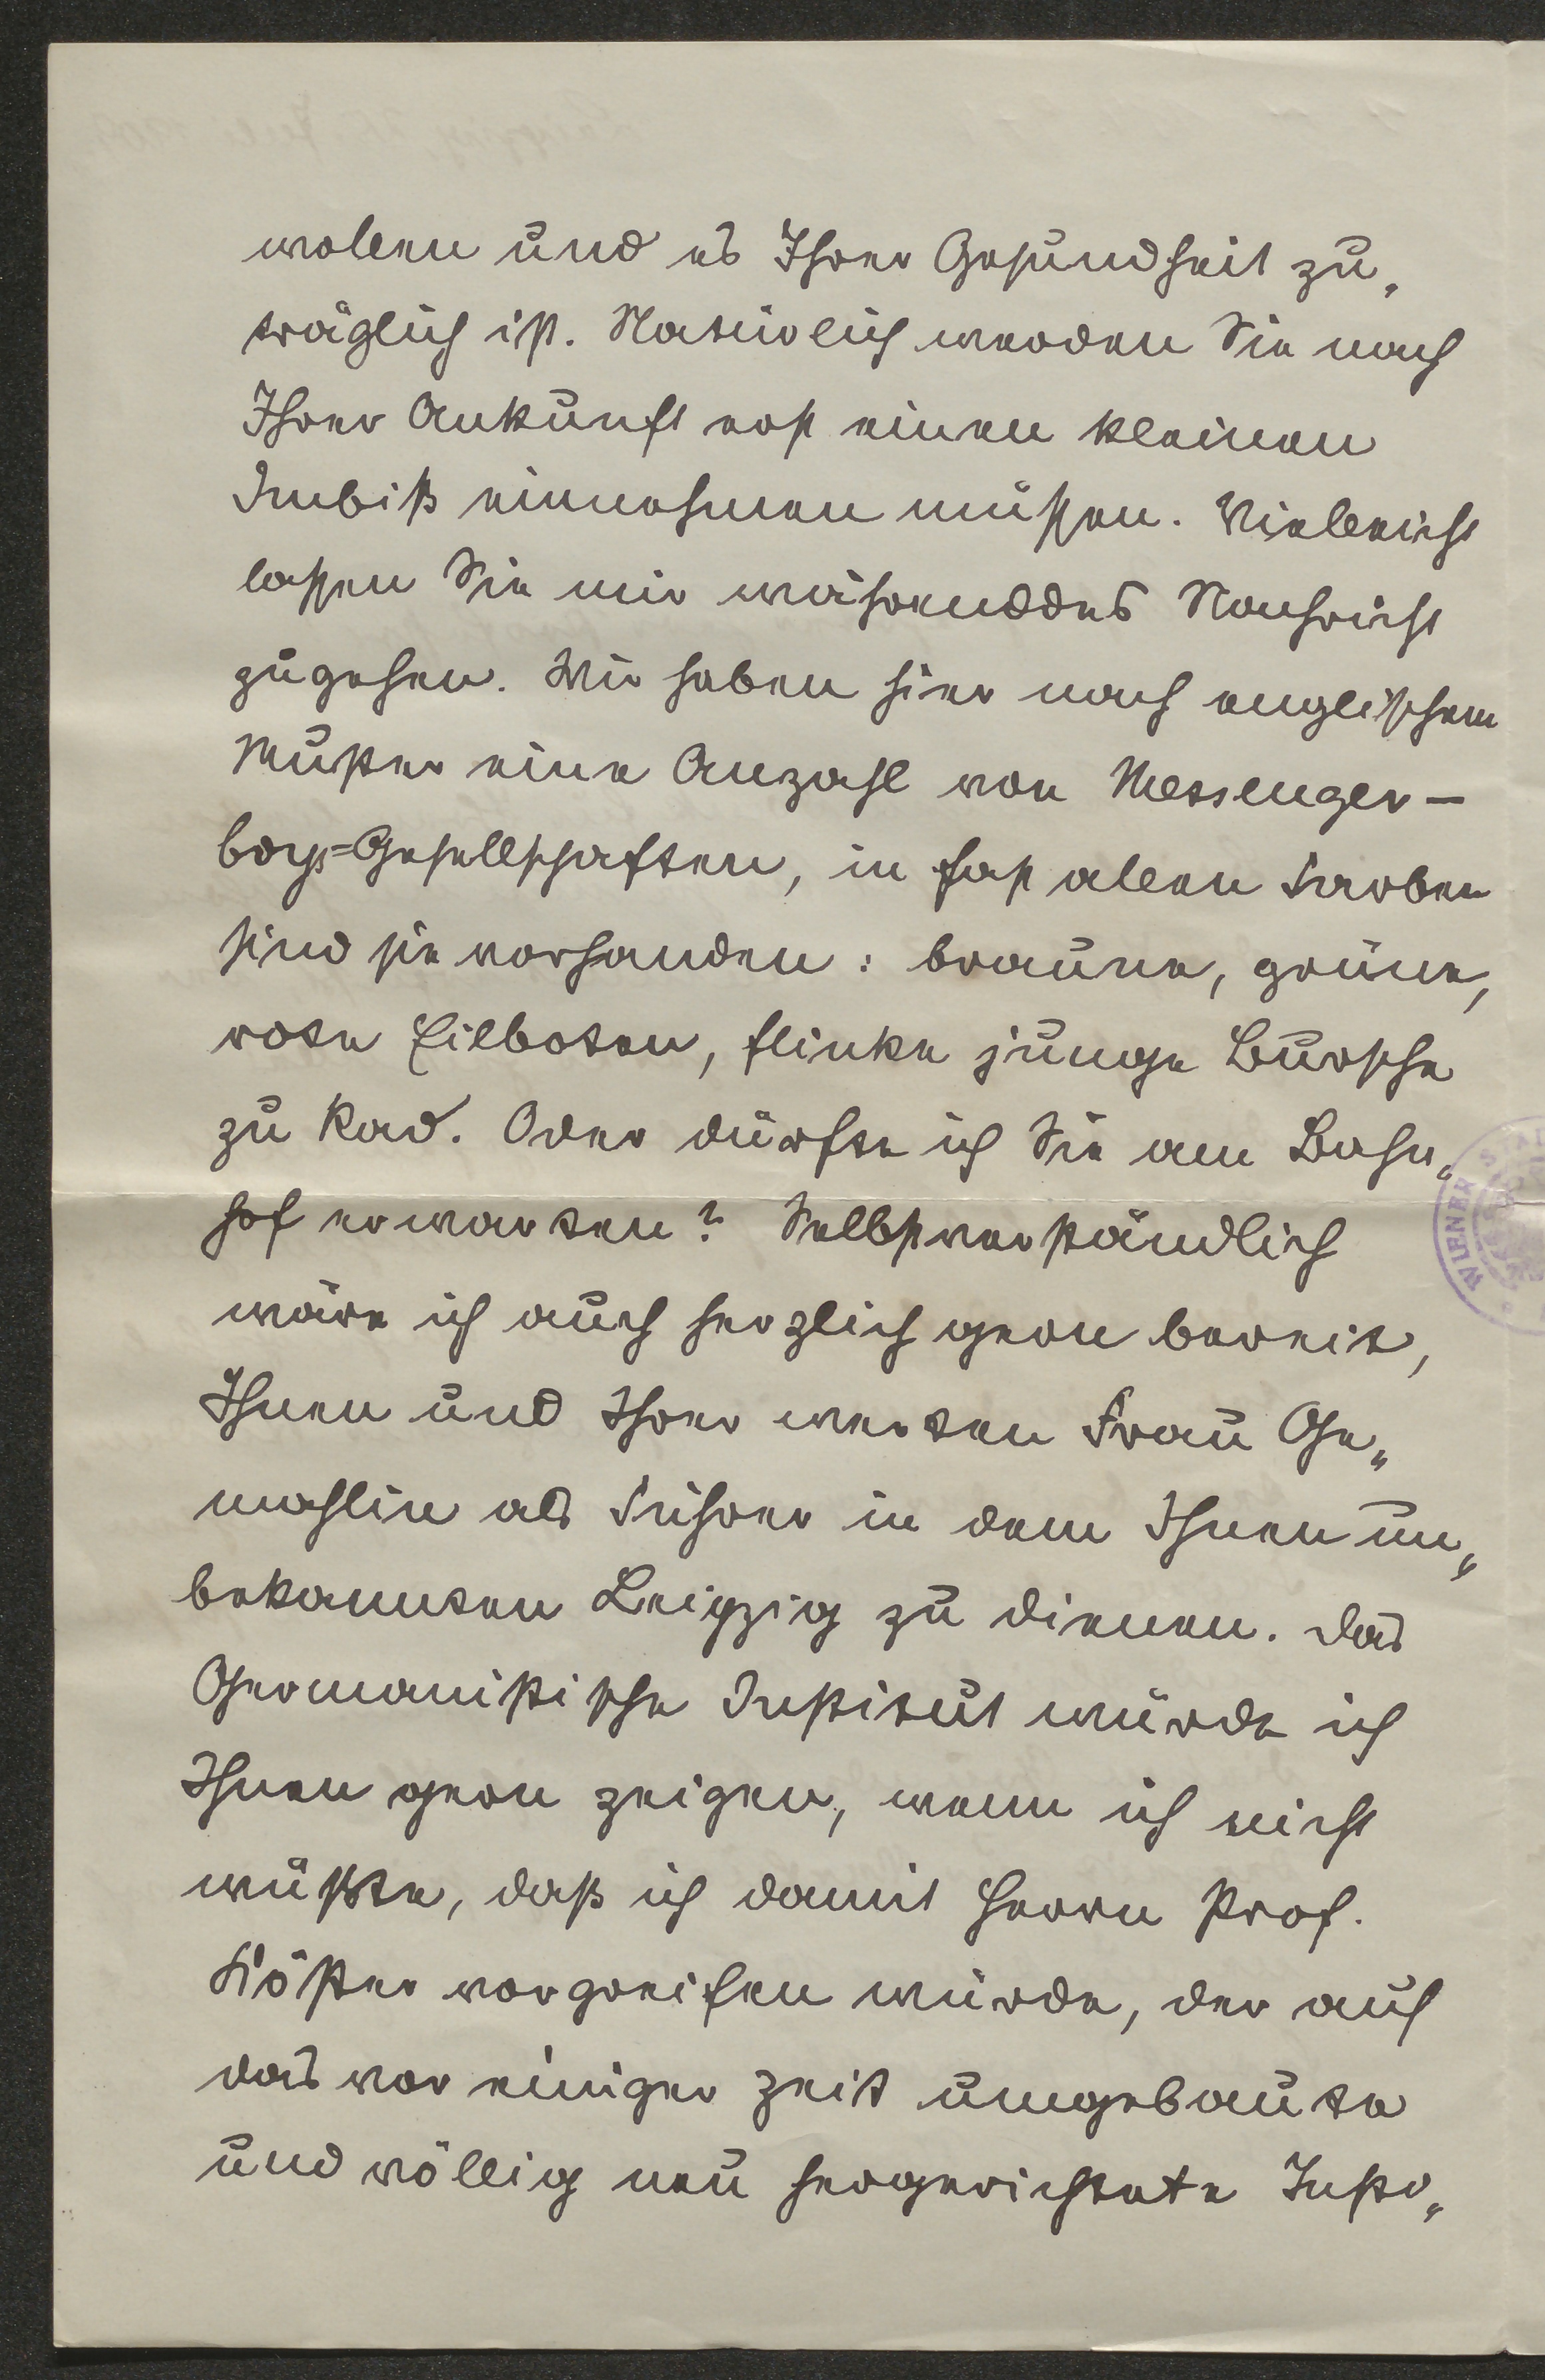 wollen und es Ihrer Gesundheit zu„
träglich ist. Natürlich werden Sie nach
Ihrer Ankunft erst einen kleinen
Imbiß einnehmen müssen. Vielleicht
lassen Sie mir währenddes Nachricht
zugehen. Wir haben hier nach englischem
Muster eine Anzahl von Messenger-
boys=Gesellschaften, in fast allen Farben
sind sie vorhanden: braune, grüne,
rote Eilboten, flinke junge Bursche
zu Rad. Oder dürfte ich Sie am Bahn„
hof erwarten? Selbstverständlich
wäre ich auch herzlich gern bereit,
Ihnen und Ihrer werten Frau Ge„
mahlin als Führer in dem Ihnen un„
bekannten Leipzig zu dienen. Das
Germanistische Institut würde ich
Ihnen gern zeigen, wenn ich nicht
wüßte, daß ich damit Herrn Prof.
Köster vorgreifen würde, der auf
das vor einiger Zeit umgebaute
und völlig neu hergerichtete Insti„
WIENER STA